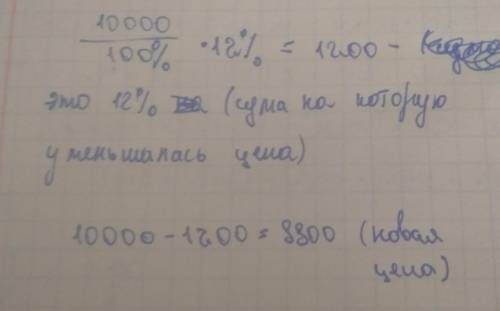 10000
100% · 12% = 1200 -
это 12% (сума на которую
уменьшалась цена)
10000 - 1200 = 8800 (новая
цена)